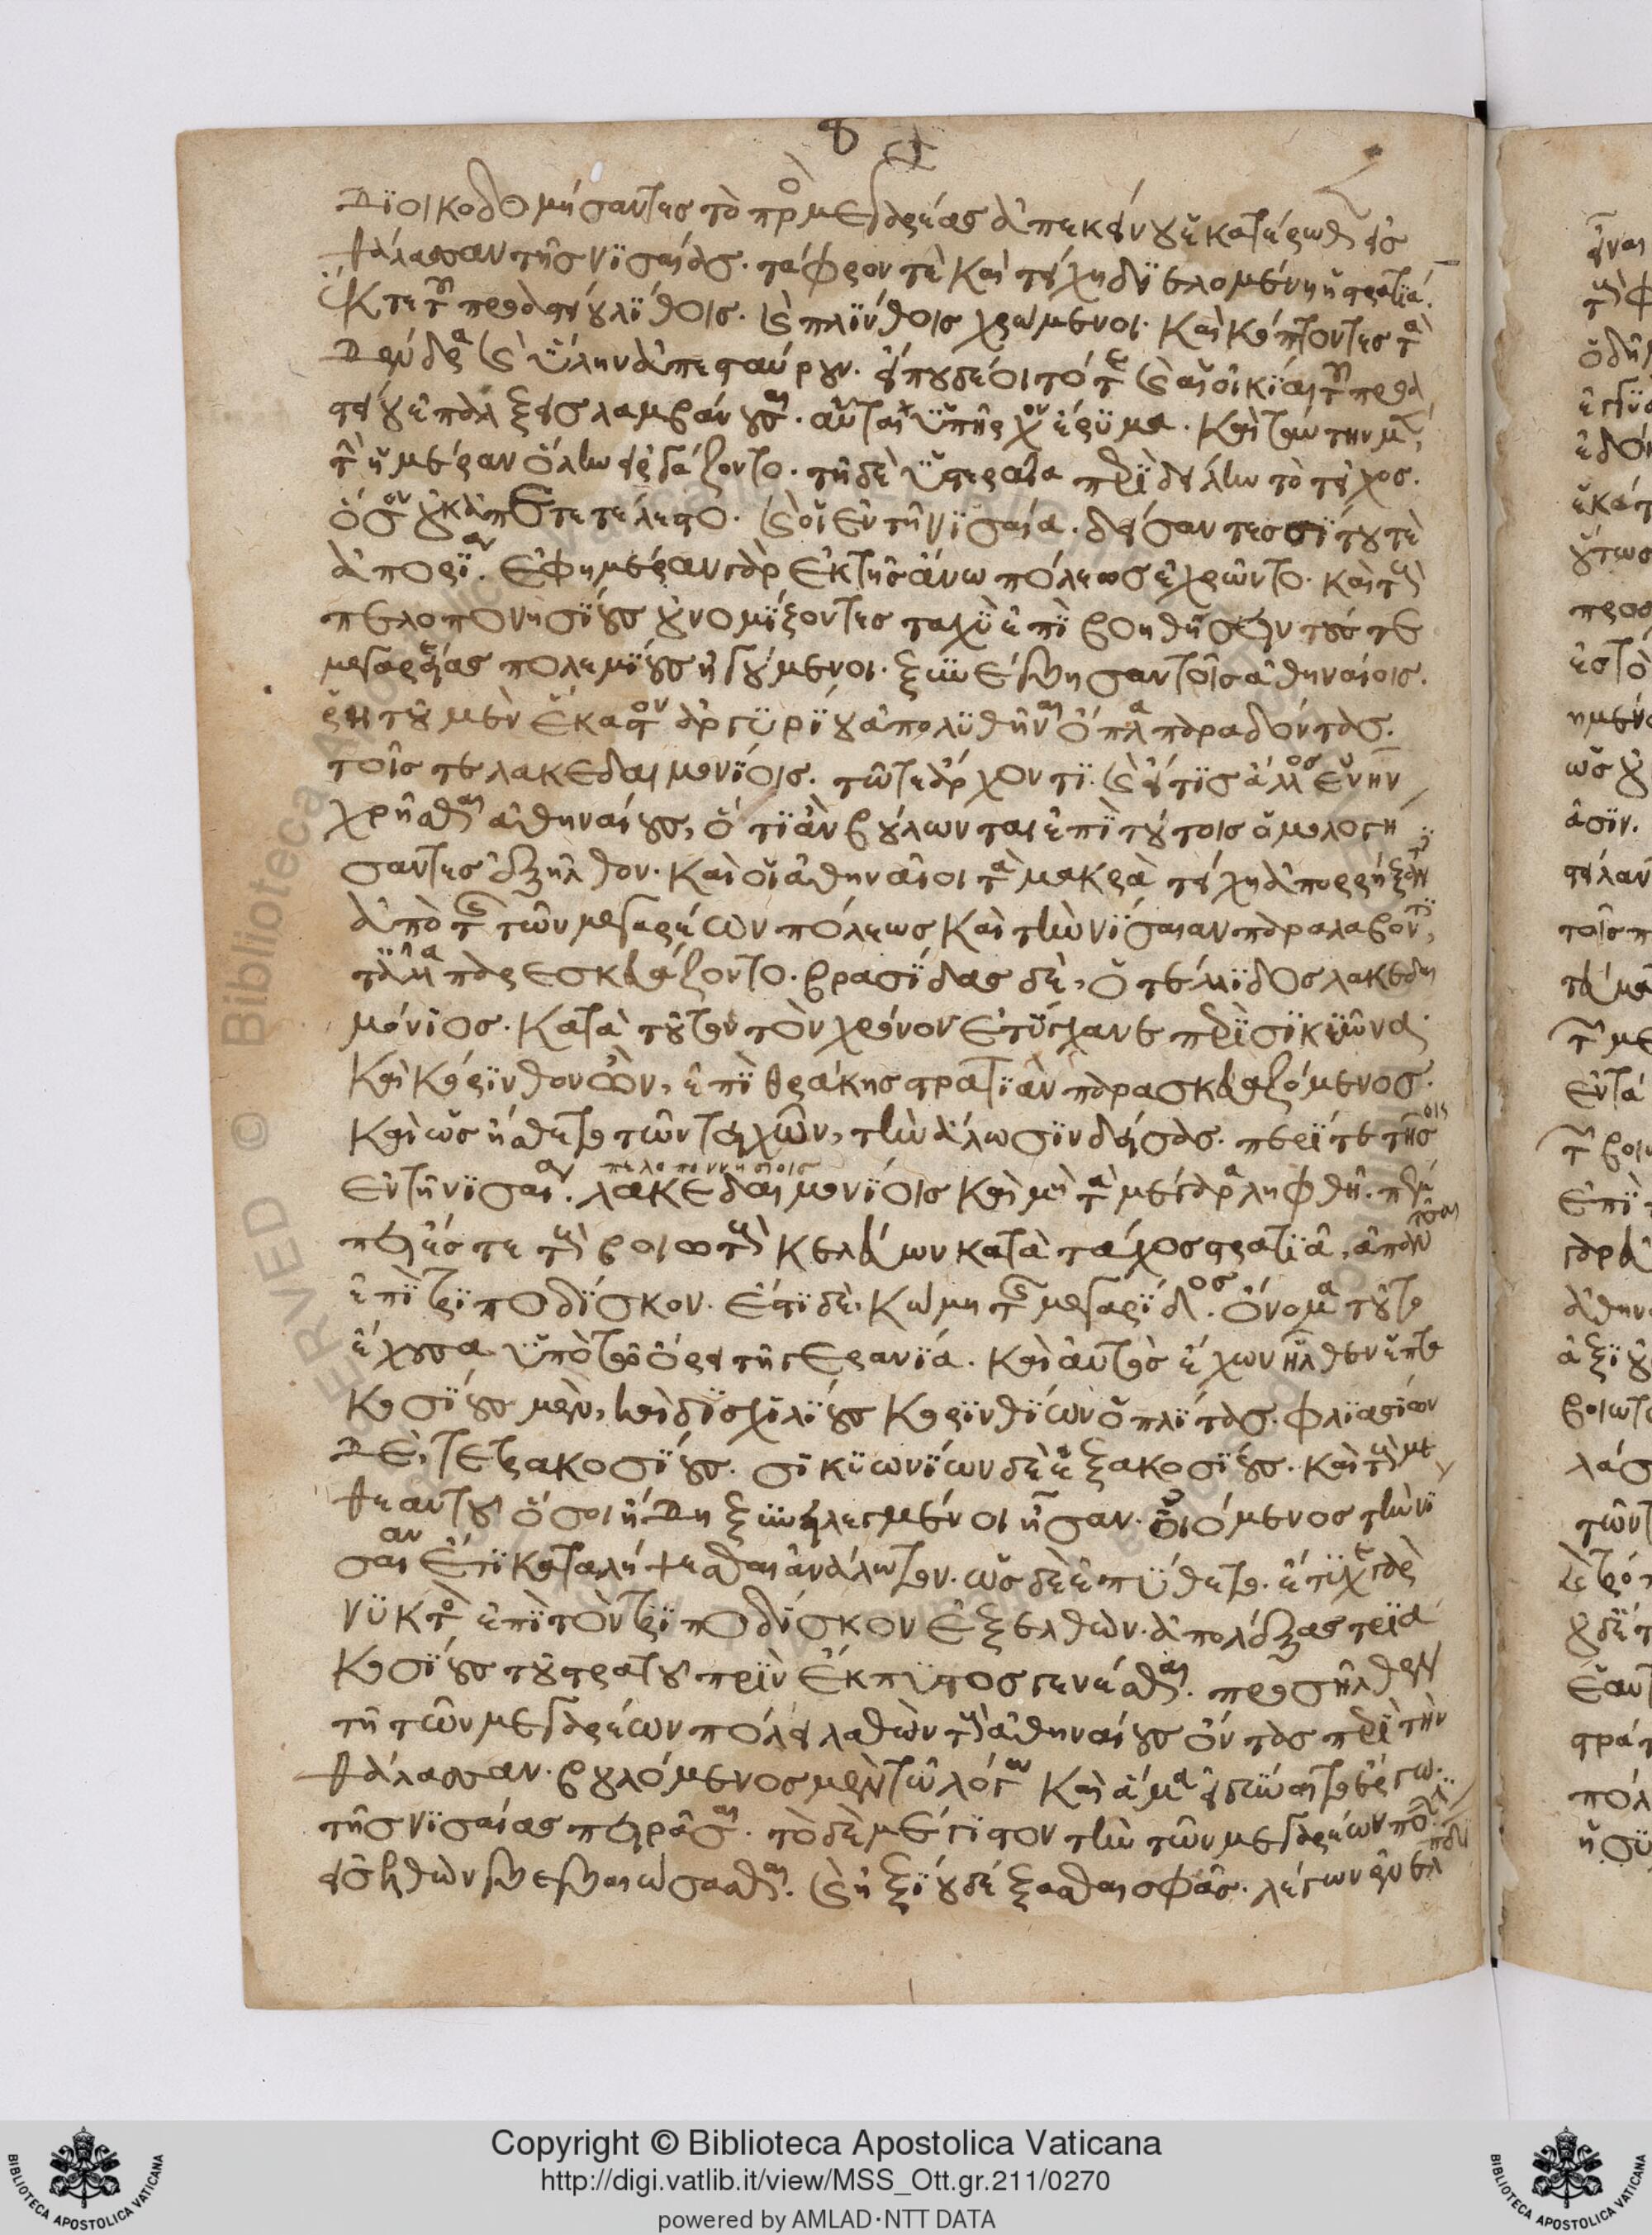 δ
διοικοδομήσαντες τὸ πρὸς μεγαρέας ἀπ' ἐκείνου ἑκατέρωθεν ἐς
θάλασσαν τῆς νισαίας. τάφρον τὲ καὶ τείχη διελομένη ἡ στρατιά.
ἔκ τε τοῦ προαστείου λίθοις. καὶ πλίνθοις χρώμενοι. καὶ κόπτοντες τὰ
δένδρα καὶ ὕλην ἀπεσταύρουν. εἴ που δέοιτό τι καὶ αἱ οἰκίαι τοῦ προα
στείου ἐπάλξεις λαμβάνουσαι. αὐταὶ ὑπῆρχον ἔρυμα. καὶ ταύτην μὲν
τὴν ἡμέραν ὅλην εἰργάζοντο. τῇ δὲ ὑστεραία περὶ δείλην τὸ τεῖχος.
ὅσον οὐκ ἀπετετέλεστο. καὶ οἱ ἐν τῇ νισαία. δείσαντες σίτου τὲ
ἀπορίαν. ἐφημέραν γὰρ ἐκ τῆς ἄνω πόλεως ἐχρῶντο. καὶ τοὺς
πελοπονησίους οὐ νομίζοντες ταχὺ ἐπιβοηθήσειν τούς τε
μεγαρέας πολεμίους ἡγούμενοι. ξυνέβησαν τοῖς ἀθηναίοις.
ῥητοῦ μὲν ἕκαστον ἀργυρίου ἀπολυθῆναι ὅπλα παραδόντας.
τοῖς τε λακεδαιμονίοις. τῶ τε ἄρχοντι. καὶ εἴ τις ἄλλος ἐνῆν
χρῆσθαι ἀθηναίους, ὅ τι ἂν βούλωνται ἐπὶ τούτοις ὁμολογή
σαντες ἐξῆλθον. καὶ οἱ ἀθηναῖοι τὰ μακρὰ τείχη ἀπορρήξαντες
ἀπὸ τῆς τῶν μεγαρέων πόλεως καὶ τὴν νίσαιαν παραλαβόντες,
τἄλλα παρεσκευάζοντο. βρασίδας δὲ, ὁ τέλλιδος λακεδαι
μόνιος. κατὰ τοῦτον τὸν χρόνον ἐτύγχανε περὶ σικυῶνα
καὶ κόρινθον ὢν, ἐπὶ θράκης στρατιὰν παρασκευαζόμενος.
καὶ ὡς ἤσθετο τῶν τειχῶν, τὴν ἅλωσιν δείσας. περί τε τοῖς
ἐν τῇ νισαία. λακεδαιμονίοις καὶ μὴ τὰ μέγαρα ληφθῆ. πέμ
πελοποννησίοις
πει ἔς τε τοὺς βοιωτοὺς κελεύων κατὰ τάχος στρατιᾶ, ἀπαντῆσαι
ἐπὶ τριποδίσκον. ἔστι δὲ κώμη τῆς μεγαρίδος. ὄνομα τοῦτο
ἔχουσα ὑπὸ τῶ ὄρει τῆ γερανία. καὶ αὐτὸς ἔχων ἦλθεν ἑπτα
κοσίους μὲν, καὶ δισχιλίους κορινθίων ὁπλίτας. φλιασίων
δὲ, τετρακοσίους. σικυωνίων δὲ ἑξακοσίους. καὶ τοὺς με
θ' ἑαυτοῦ ὅσοι ἤδη ξυνειλεγμένοι ἦσαν. οἰόμενος τὴν νι
σαίαν ἔτι καταλήψεσθαι ἀνάλωτον. ὡς δὲ ἐπύθετο. ἔτυχε γὰρ
νυκτὸς ἐπὶ τὸν τριποδίσκον ἐξελθὼν. ἀπολέξας τρια
κοσίους τοῦ στρατοῦ πρὶν ἔκπυστος γενέσθαι. προσῆλθεν
τῆ τῶν μεγαρέων πόλει λαθὼν τοὺς ἀθηναίους ὄντας περὶ τὴν
θάλασσαν. βουλόμενος μὲν τῶ λόγω καὶ ἅμα εἰ δύναιτο ἔργω.
τῆς νισαίας πειρᾶσαι. τὸ δὲ μέγιστον τὴν τῶν μεγαρέων πόλιν
εἰσελθὼν βεβαιώσασθαι. καὶ ἠξίου δέξασθαι σφᾶς. λέγων ἐν ἐλπίδι
Copyright © Biblioteca Apostolica Vaticana
http://digi.vatlib.it/view/MSS_Ott.gr.211/0270
powered by AMLAD·NTT DATA
BIBLIOTECA APOSTOLICA VATICANA
BIBLIOTECA APOSTOLICA VATICANA